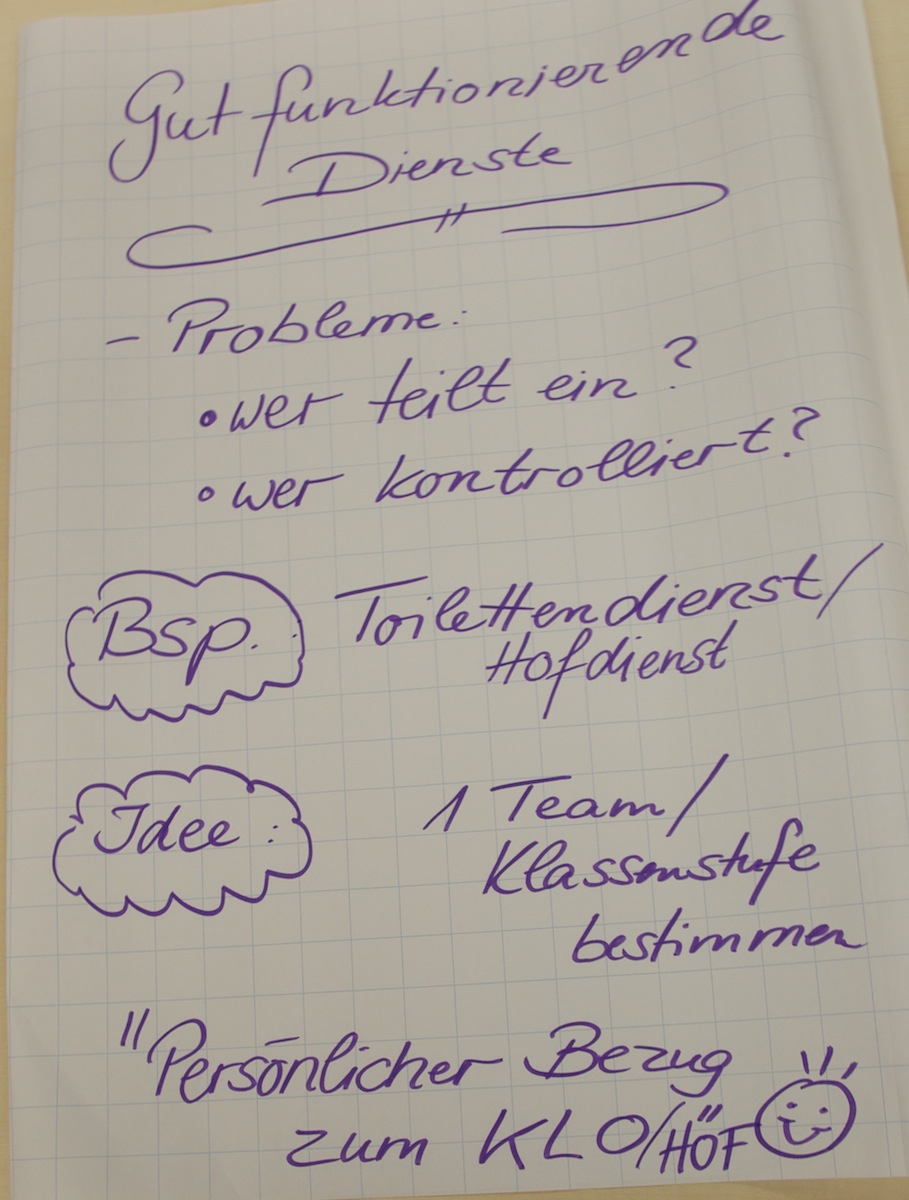 Gut funktionierende
Dienste
- Probleme:
• wer teilt ein?
• wer kontrolliert?
Bsp.: Toilettendienst/
Hofdienst
Idee: 1 Team/
Klassenstufe
bestimmen
"Persönlicher Bezug
zum KLO/HOF"